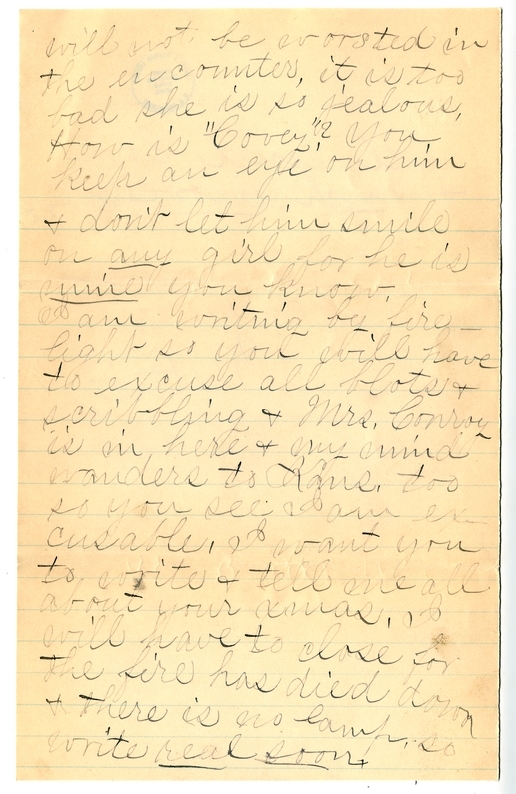 will not be worsted in
the encounter, it is too
bad she is so jealous,
How is "Covey"? You
keep an eye on him
& don't let him smile
on any girl for he is
mine you know.
I am writing by fire-
light so you will have
to excuse all blots &
scribbling & Mrs. Conroy
is in here & my mind
wanders to Kans. too
so you see I am ex-
cusable. I want you
to write & tell me all
about your xmas. I
will have to close for
the fire has died down
& there is no lamp. so
write real soon.